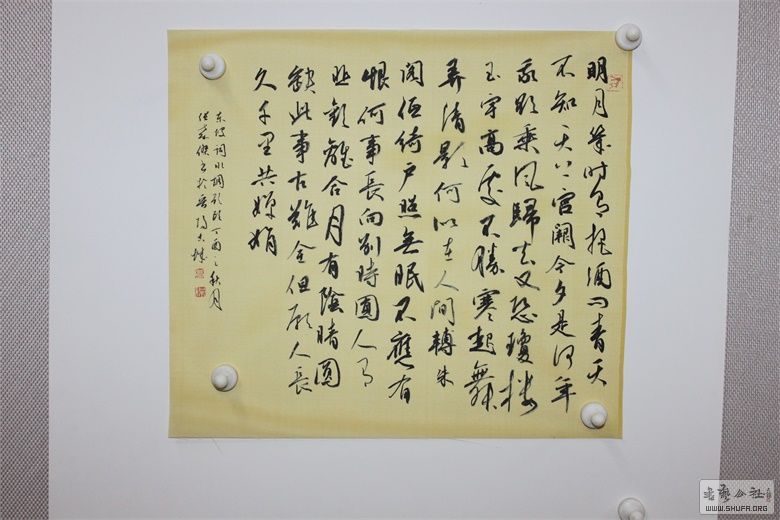 明月幾时有把酒问青天
不知天上宫阙今夕是何年
我欲乘风歸去又恐瓊楼
玉宇高處不勝寒起舞
弄清影何似在人间轉朱
阁低绮户照無眠不應有
恨何事長向别時圓人有
悲歡離合月有陰晴圆
缺此事古難全但願人長
久千里共嬋娟
东坡词水调歌頭丁酉之秋月
书於
公社
WWW.SHUFA.ORG